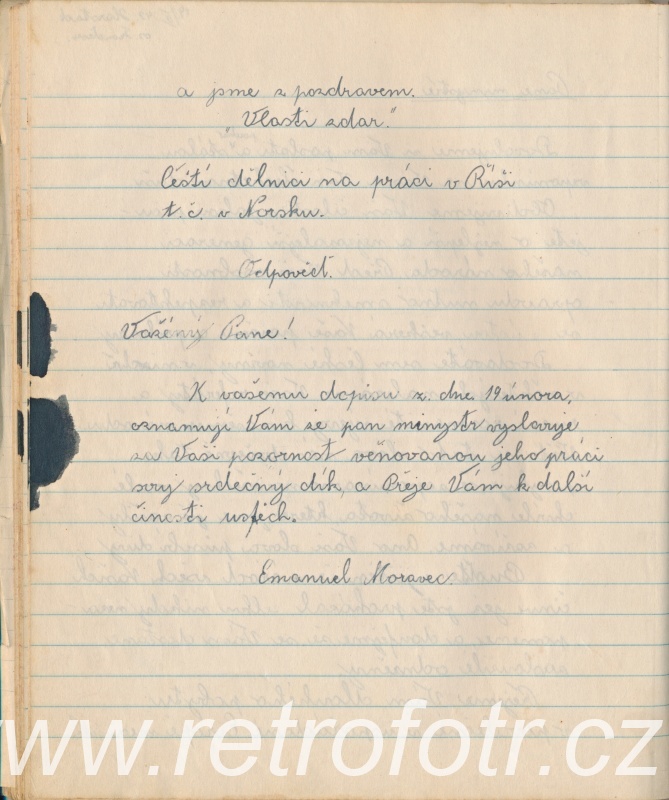 a jsme z pozdravem.
"Vlasti zdar."
Čeští dělníci na práci v Říši
t. č. v Norsku.
Odpověď.
Vážený Pane!
K vašemu dopisu z. dne 19 února,
oznamují Vám že pan minystr vyslovuje
za Vaši pozornost věňovanou jeho práci
svůj srdečný dík, a Přeje Vám k další
činosti uspěch.
Emanuel Moravec.
www.retrofotr.cz